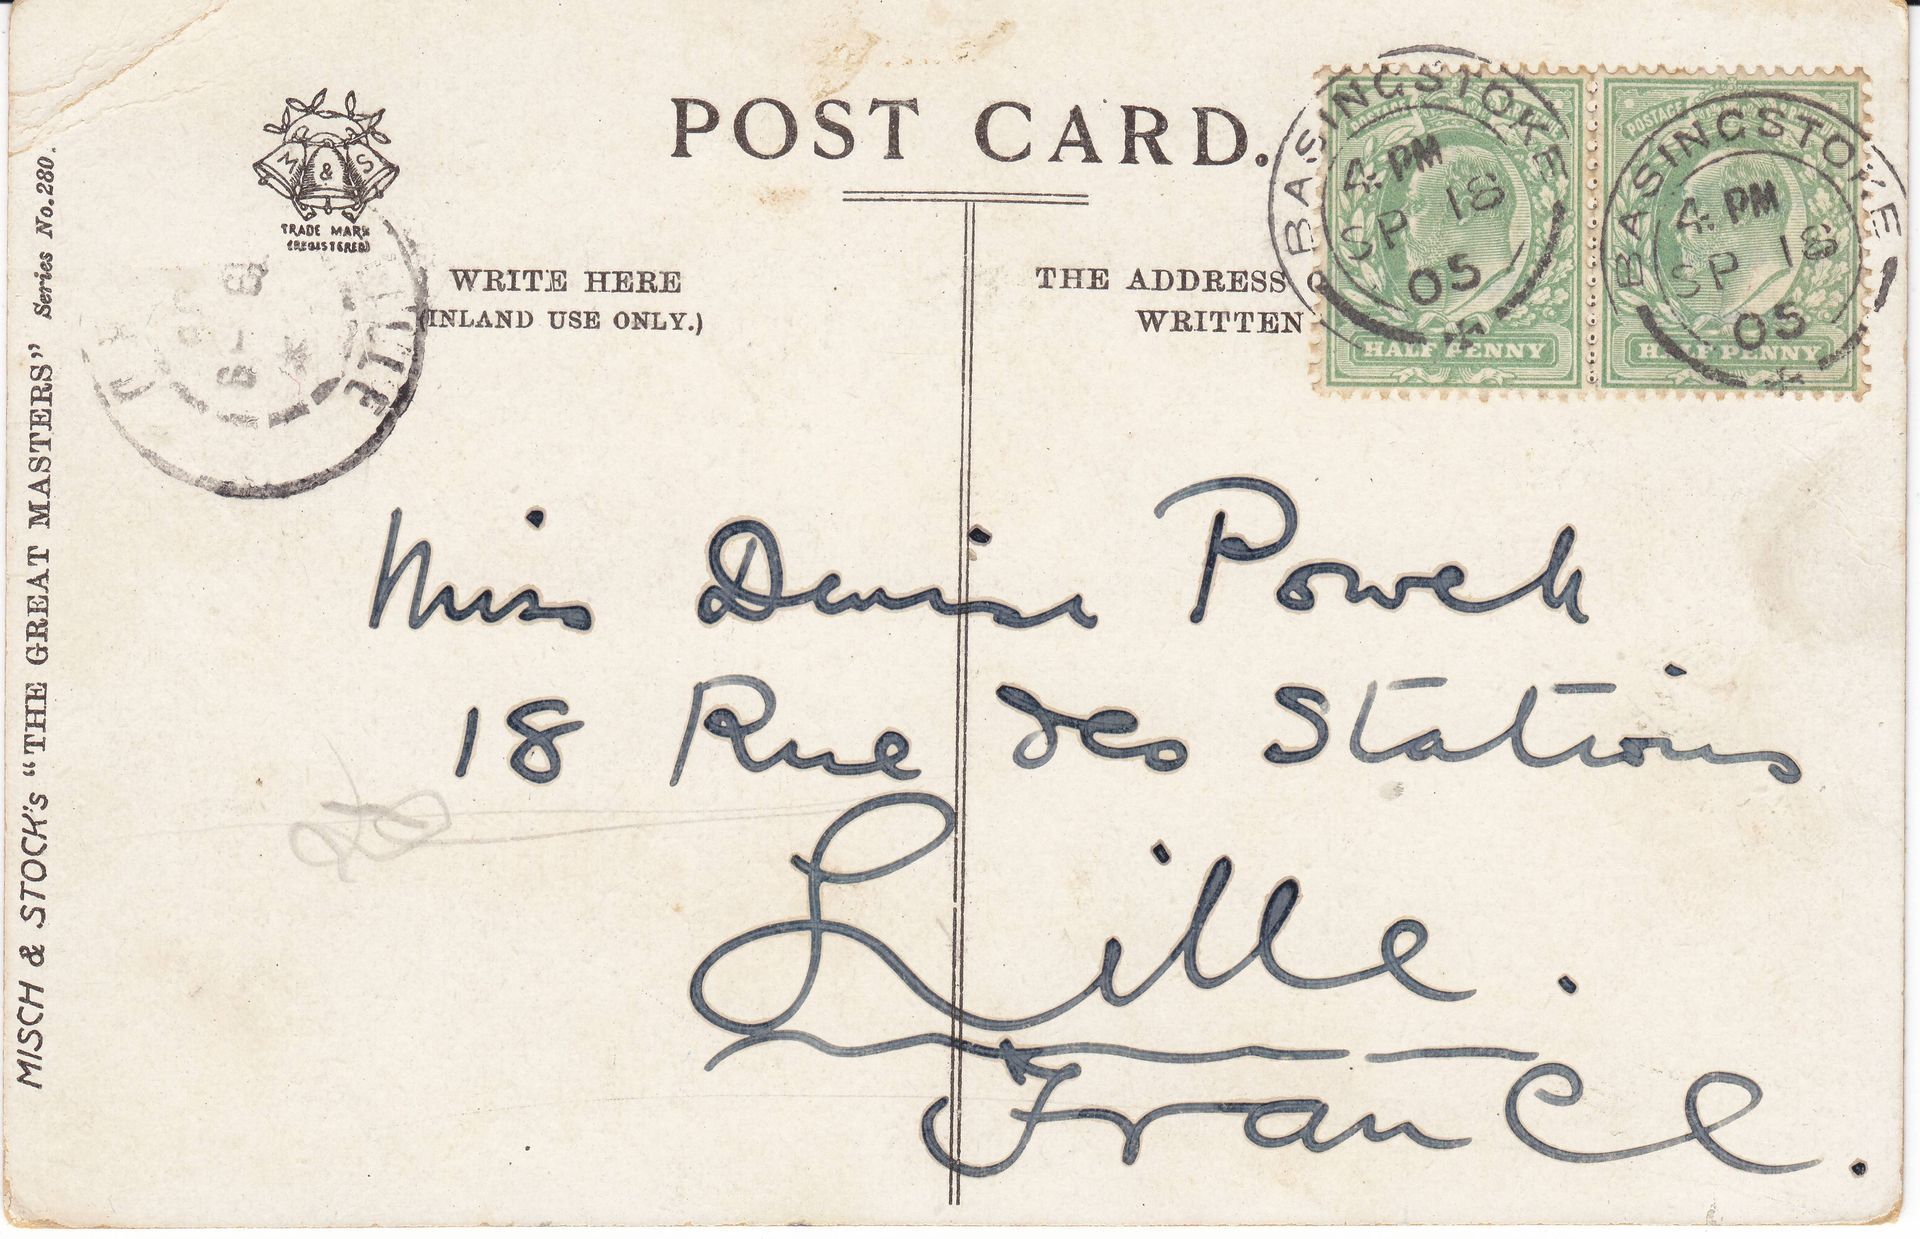 POST CARD.
M & S
TRADE MARK
(REGISTERED)
WRITE HERE
(INLAND USE ONLY.)
THE ADDRESS
WRITTEN
BASINGSTOKE
4. PM
SP 18
05
BASINGSTOKE
4. PM
SP 18
05
POSTAGE
HALF PENNY
HALF PENNY
LILLE
Miss Denise Powell
18 Rue des Stations
Lille.
France.
MISCH & STOCK's "THE GREAT MASTERS" Series No. 280.